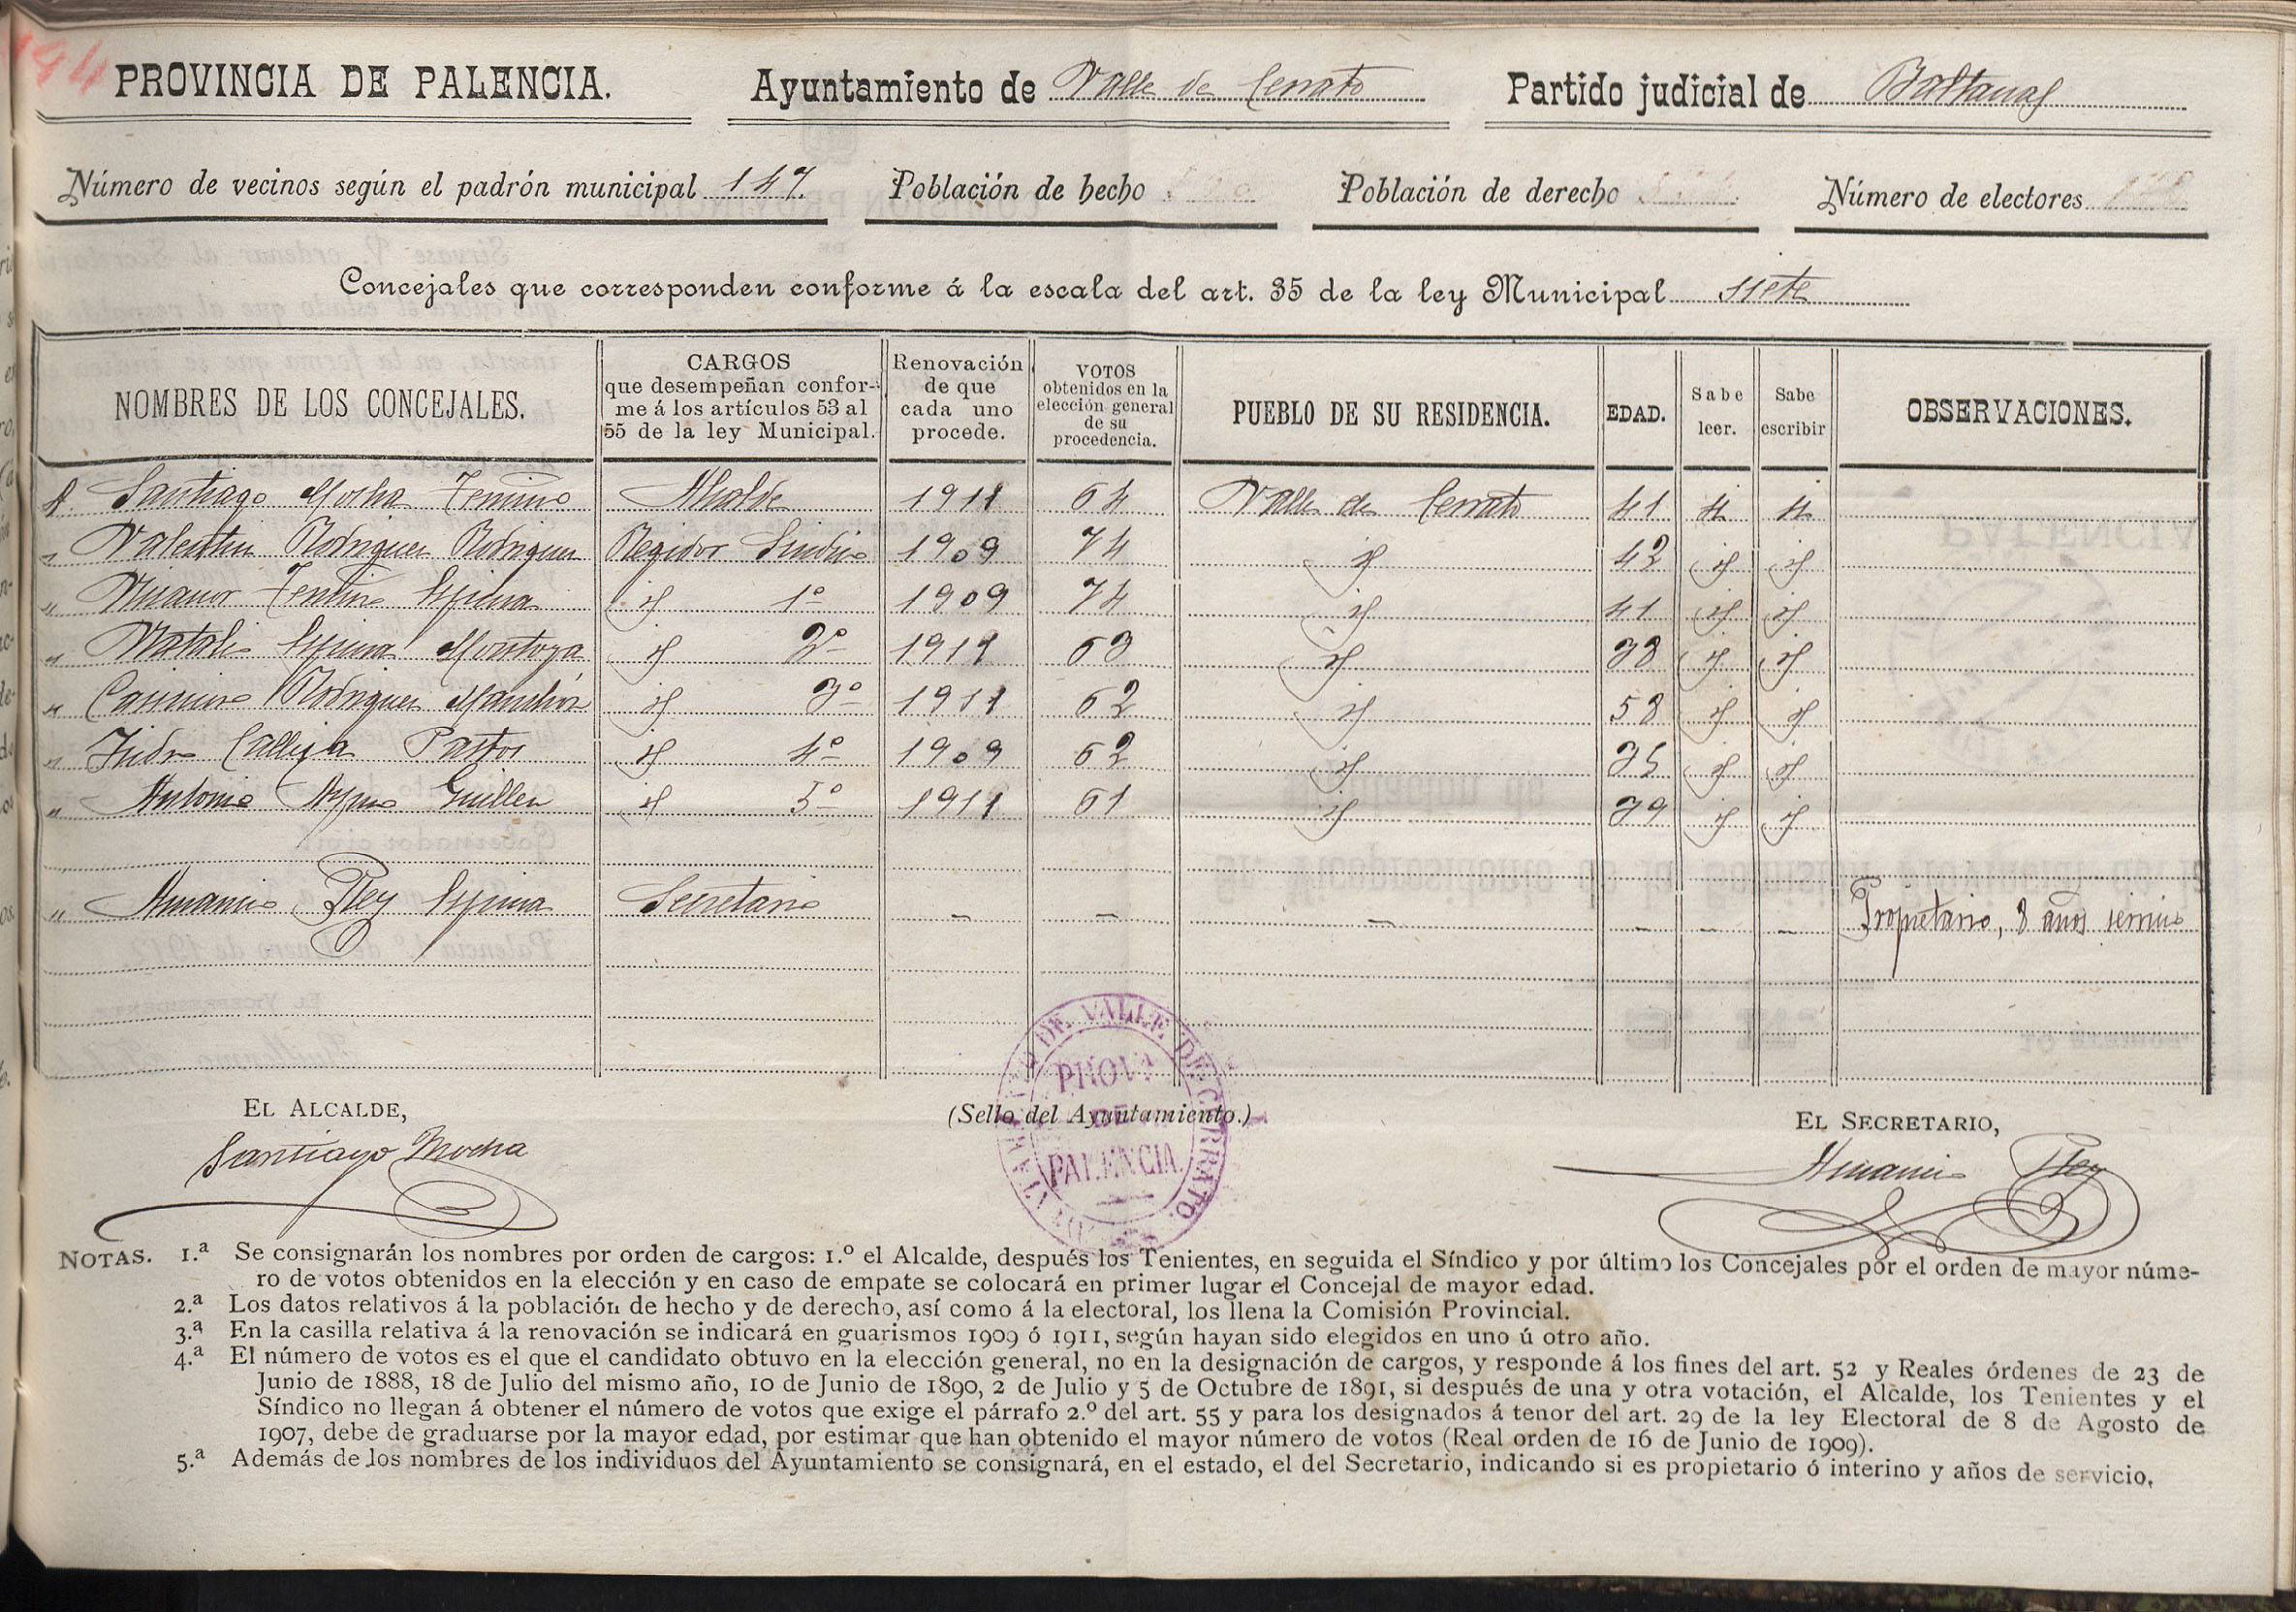 194
PROVINCIA DE PALENCIA.
Ayuntamiento de Valle de Cerrato
Partido judicial de Baltanas
Número de vecinos según el padrón municipal 147.
Población de hecho
Población de derecho
Número de electores
Concejales que corresponden conforme á la escala del art. 35 de la ley Municipal siete
NOMBRES DE LOS CONCEJALES.
CARGOS
que desempeñan confor-
me á los artículos 53 al
55 de la ley Municipal.
Renovación
de que
cada uno
procede.
VOTOS
obtenidos en la
elección general
de su
procedencia.
PUEBLO DE SU RESIDENCIA.
EDAD.
Sabe
leer.
Sabe
escribir
OBSERVACIONES.
D. Santiago Mocha Temiño Alcalde 1911 64 Valle de Cerrato 41 si si
" Valentin Rodriguez Rodriguez Regidor Sindico 1909 74 id 42 id id
" Nicanor Temiño Espina id 1º 1909 74 id 41 id id
" Natalio Espina Montoya id 2º 1911 63 id 38 id id
" Casimiro Rodriguez Monchón id 3º 1911 62 id 58 id id
" Isidro Calleja Pastor id 4º 1909 62 id 35 id id
" Antonio Ayuso Guillen id 5º 1911 61 id 39 id id
" Amancio Rey Espina Secretario - - - - - - Propietario, 8 años servicio
EL ALCALDE,
Santiago Mocha
(Sello del Ayuntamiento.)
DE VALLE DE CERRATO.
PROVA
DE
PALENCIA
EL SECRETARIO,
Amancio Rey
NOTAS. 1.ª Se consignarán los nombres por orden de cargos: 1.º el Alcalde, después los Tenientes, en seguida el Síndico y por último los Concejales por el orden de mayor núme-
ro de votos obtenidos en la elección y en caso de empate se colocará en primer lugar el Concejal de mayor edad.
2.ª Los datos relativos á la población de hecho y de derecho, así como á la electoral, los llena la Comisión Provincial.
3.ª En la casilla relativa á la renovación se indicará en guarismos 1909 ó 1911, según hayan sido elegidos en uno ú otro año.
4.ª El número de votos es el que el candidato obtuvo en la elección general, no en la designación de cargos, y responde á los fines del art. 52 y Reales órdenes de 23 de
Junio de 1888, 18 de Julio del mismo año, 10 de Junio de 1890, 2 de Julio y 5 de Octubre de 1891, si después de una y otra votación, el Alcalde, los Tenientes y el
Síndico no llegan á obtener el número de votos que exige el párrafo 2.º del art. 55 y para los designados á tenor del art. 29 de la ley Electoral de 8 de Agosto de
1907, debe de graduarse por la mayor edad, por estimar que han obtenido el mayor número de votos (Real orden de 16 de Junio de 1909).
5.ª Además de los nombres de los individuos del Ayuntamiento se consignará, en el estado, el del Secretario, indicando si es propietario ó interino y años de servicio.